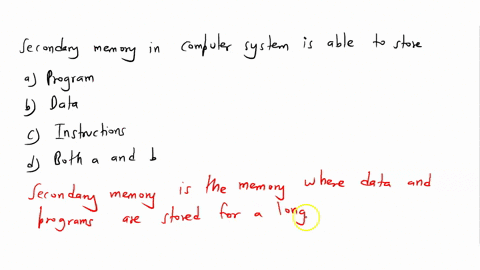 Secondary memory in computer system is able to store
a) Program
b) Data
c) Instructions
d) Both a and b
Secondary memory is the memory where data and
programs are stored for a long